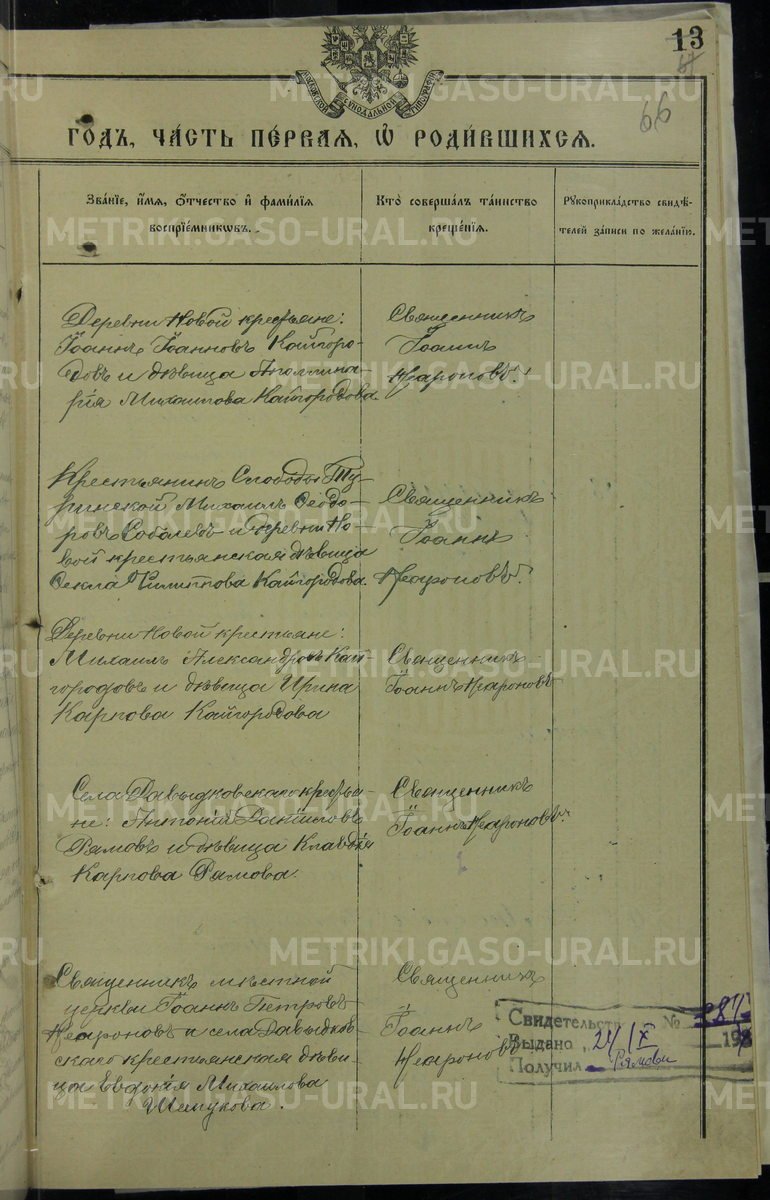 13
66
ГОДЪ, ЧА́СТЬ ПЕ́РВАЯ, Ѡ҆ РОДИ́ВШИХСѦ.
Зва́нїе, и҆́мѧ, ѻ҆́тчество и҆ фами́лїѧ
воспрїе́мникѡвъ.
Кто̀ соверша́лъ та́инство
креще́нїѧ.
Рꙋкоприкла́дство свидѣ́-
телей за́писи по жела́нїю.
Деревни Новой крестьяне:
Іоаннъ Іоанновъ Кайгоро-
довъ и дѣвица Аполлина-
рія Михаилова Кайгородова.
Священникъ
Іоаннъ
Крестьянинъ Слободы Ту-
ринской Михаилъ Ѳеодо-
ровъ Соболевъ и деревни Но-
вой крестьянская дѣвица
Ѳекла Филиппова Кайгородова.
Священникъ
Іоаннъ
Деревни Новой крестьяне:
Михаилъ Александровъ Кай-
городовъ и дѣвица Ирина
Карпова Кайгородова
Священникъ
Іоаннъ
Села Давыдковскаго крестья-
не: Антоній Даниловъ
Рямовъ и дѣвица Клавдія
Карпова Рямова.
Священникъ
Іоаннъ
Священникъ мѣстной
церкви Іоаннъ Петровъ
и села Давыдков-
скаго крестьянская дѣви-
ца Евдокія Михаилова
Шипукова.
Священникъ
Іоаннъ
Свидетельств №
Выдано 24/IX 19
Получил Рямов
METRIKI.GASO-URAL.RU